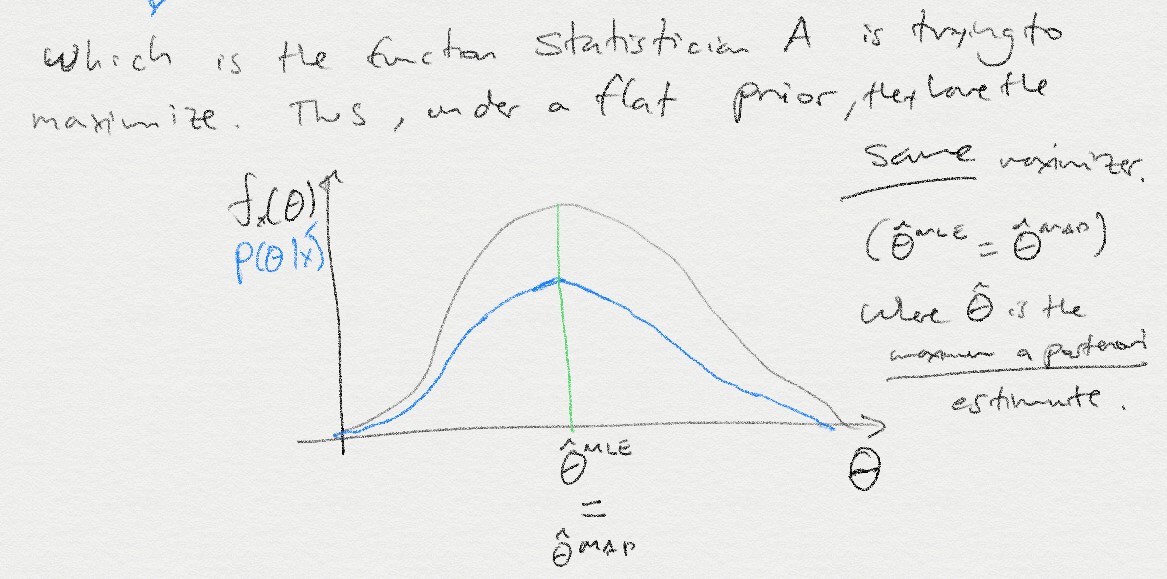 which is the function Statistician A is trying to
maximize. Thus, under a flat prior, they have the
same maximizer.
f_x(θ)
p(θ|x)
(θ̂^MLE = θ̂^MAP)
where θ̂ is the
maximum a posteriori
estimate.
θ̂^MLE
=
θ̂^MAP
θ